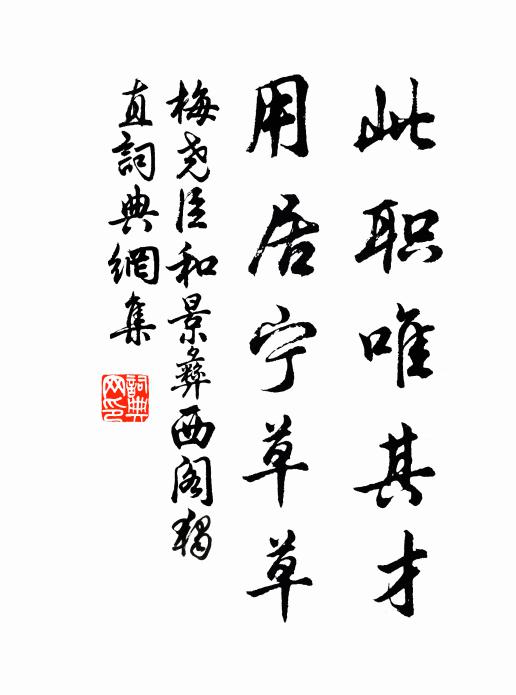 此职唯其才
用居宁草草
梅尧臣和景彝西阁独
直詞典網集
詞典
网印